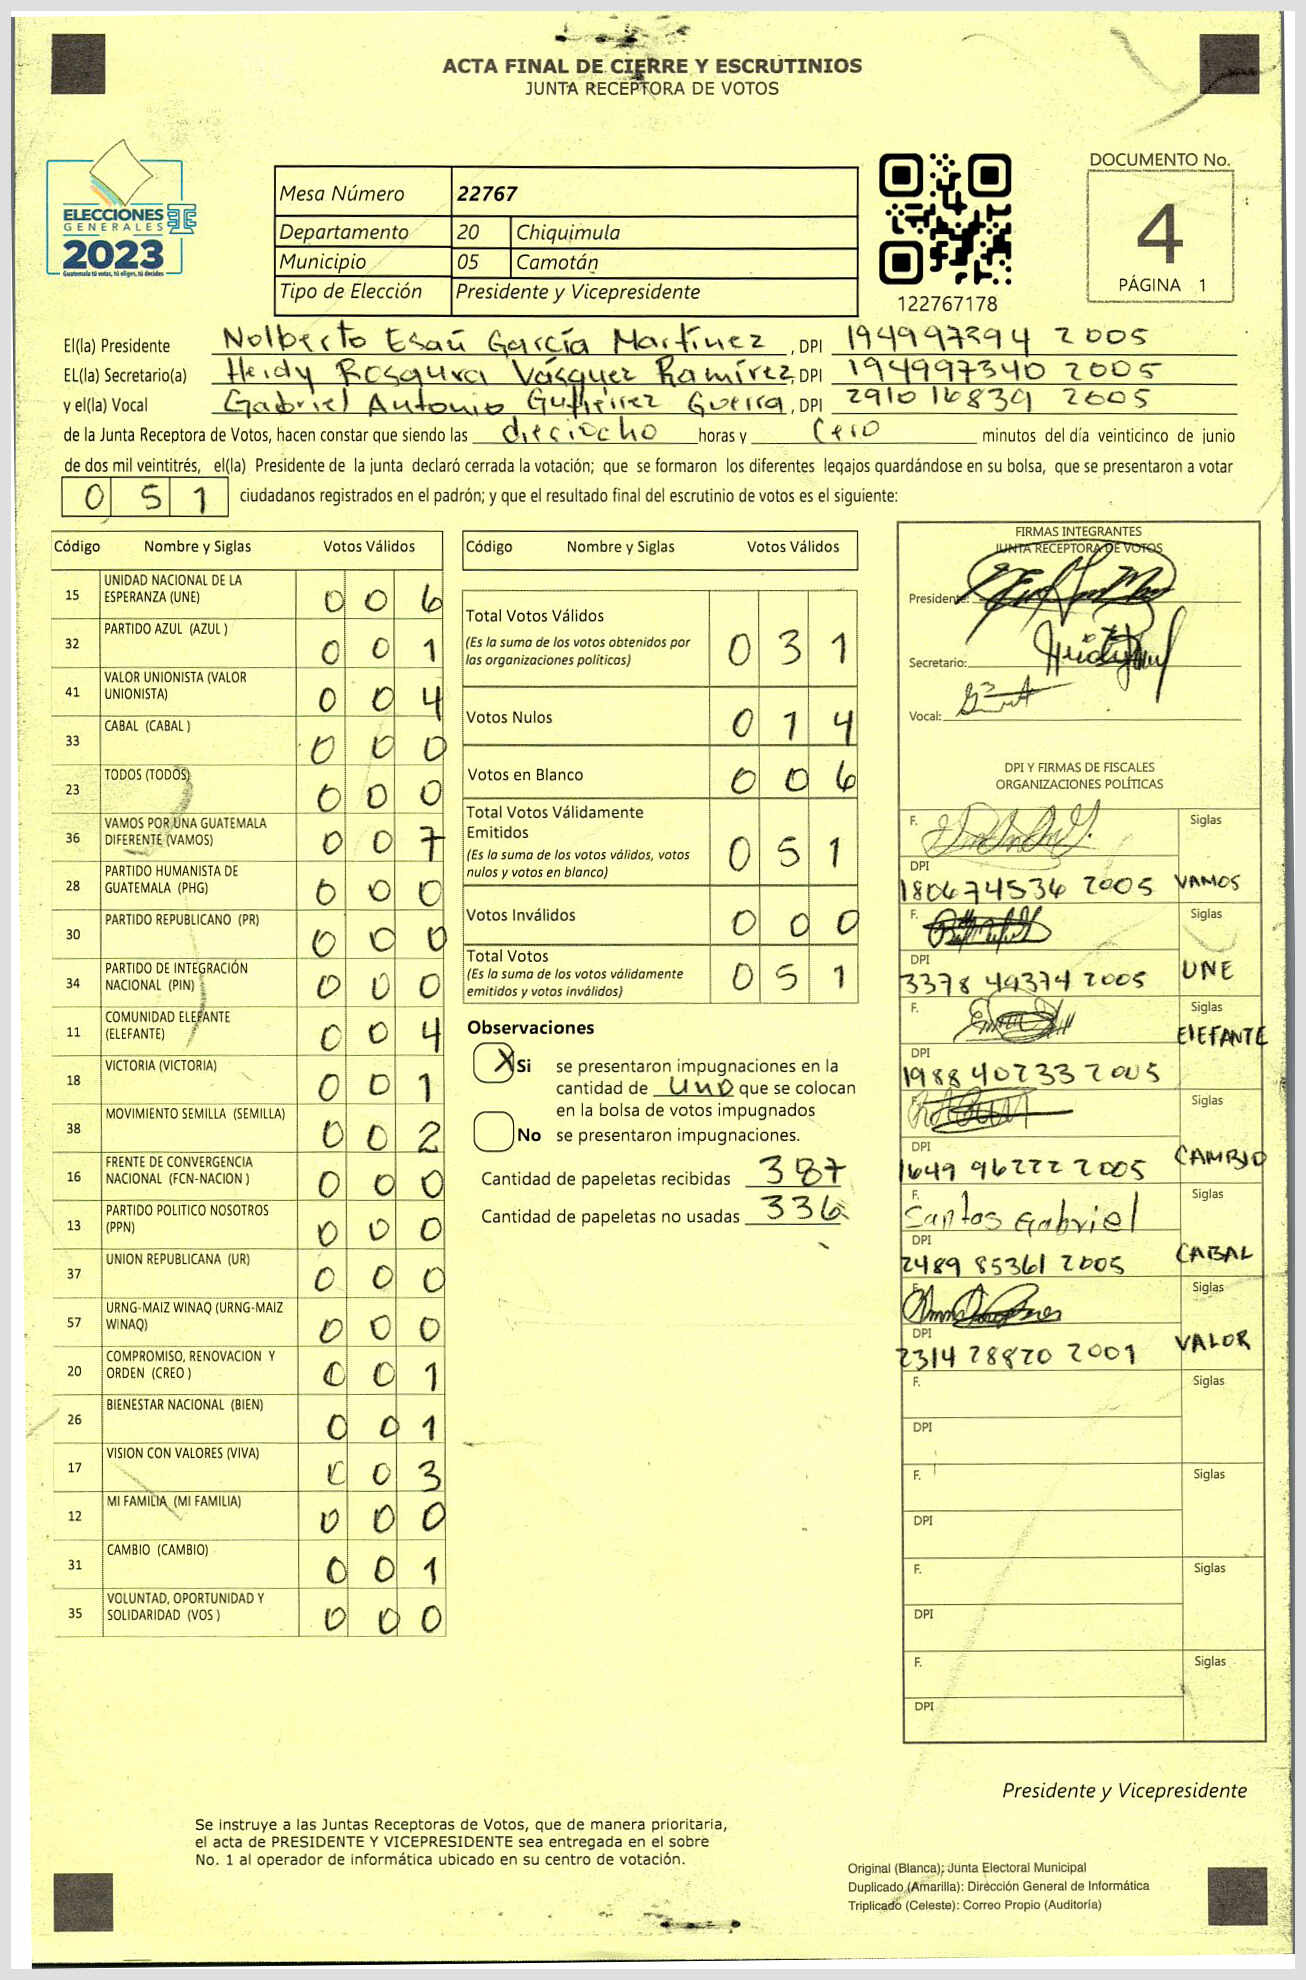 ACTA FINAL DE CIERRE Y ESCRUTINIOS
JUNTA RECEPTORA DE VOTOS
ELECCIONES
GENERALES
2023
Guatemala tú votas, tú eliges, tú decides
Mesa Número 22767
Departamento 20 Chiquimula
Municipio 05 Camotán
Tipo de Elección Presidente y Vicepresidente
122767178
DOCUMENTO No.
4
PÁGINA 1
El(la) Presidente Nolberto Esaú García Martínez, DPI 194997394 2005
EL(la) Secretario(a) Heidy Rosaura Vásquez Ramírez, DPI 194997340 2005
y el(la) Vocal Gabriel Antonio Gutiérrez Guerra, DPI 291016839 2005
de la Junta Receptora de Votos, hacen constar que siendo las dieciocho horas y Cero minutos del día veinticinco de junio
de dos mil veintitrés, el(la) Presidente de la junta declaró cerrada la votación; que se formaron los diferentes legajos quardándose en su bolsa, que se presentaron a votar
0 5 1 ciudadanos registrados en el padrón; y que el resultado final del escrutinio de votos es el siguiente:
Código Nombre y Siglas Votos Válidos
15 UNIDAD NACIONAL DE LA ESPERANZA (UNE) 0 0 6
32 PARTIDO AZUL (AZUL ) 0 0 1
41 VALOR UNIONISTA (VALOR UNIONISTA) 0 0 4
33 CABAL (CABAL ) 0 0 0
23 TODOS (TODOS) 0 0 0
36 VAMOS POR UNA GUATEMALA DIFERENTE (VAMOS) 0 0 7
28 PARTIDO HUMANISTA DE GUATEMALA (PHG) 0 0 0
30 PARTIDO REPUBLICANO (PR) 0 0 0
34 PARTIDO DE INTEGRACIÓN NACIONAL (PIN) 0 0 0
11 COMUNIDAD ELEFANTE (ELEFANTE) 0 0 4
18 VICTORIA (VICTORIA) 0 0 1
38 MOVIMIENTO SEMILLA (SEMILLA) 0 0 2
16 FRENTE DE CONVERGENCIA NACIONAL (FCN-NACION ) 0 0 0
13 PARTIDO POLITICO NOSOTROS (PPN) 0 0 0
37 UNION REPUBLICANA (UR) 0 0 0
57 URNG-MAIZ WINAQ (URNG-MAIZ WINAQ) 0 0 0
20 COMPROMISO, RENOVACION Y ORDEN (CREO ) 0 0 1
26 BIENESTAR NACIONAL (BIEN) 0 0 1
17 VISION CON VALORES (VIVA) 0 0 3
12 MI FAMILIA (MI FAMILIA) 0 0 0
31 CAMBIO (CAMBIO) 0 0 1
35 VOLUNTAD, OPORTUNIDAD Y SOLIDARIDAD (VOS ) 0 0 0
Código Nombre y Siglas Votos Válidos
Total Votos Válidos 0 3 1
(Es la suma de los votos obtenidos por
las organizaciones políticas)
Votos Nulos 0 1 4
Votos en Blanco 0 0 6
Total Votos Válidamente
Emitidos 0 5 1
(Es la suma de los votos válidos, votos
nulos y votos en blanco)
Votos Inválidos 0 0 0
Total Votos 0 5 1
(Es la suma de los votos válidamente
emitidos y votos inválidos)
Observaciones
X Si se presentaron impugnaciones en la
cantidad de uno que se colocan
en la bolsa de votos impugnados
No se presentaron impugnaciones.
Cantidad de papeletas recibidas 387
Cantidad de papeletas no usadas 336
FIRMAS INTEGRANTES
JUNTA RECEPTORA DE VOTOS
Presidente:
Secretario:
Vocal:
DPI Y FIRMAS DE FISCALES
ORGANIZACIONES POLÍTICAS
F. Siglas
DPI
180674536 2005 VAMOS
F. Siglas
DPI
3378 49374 2005 UNE
F. Siglas
DPI ElEFANTE
1988 40733 2005
F. Siglas
DPI
1649 96222 2005 CAMBIO
F. Siglas
Santos Gabriel
DPI
2489 85361 2005 CABAL
F. Siglas
DPI
2314 28820 2001 VALOR
F. Siglas
DPI
F. Siglas
DPI
F. Siglas
DPI
F. Siglas
DPI
Presidente y Vicepresidente
Se instruye a las Juntas Receptoras de Votos, que de manera prioritaria,
el acta de PRESIDENTE Y VICEPRESIDENTE sea entregada en el sobre
No. 1 al operador de informática ubicado en su centro de votación.
Original (Blanca): Junta Electoral Municipal
Duplicado (Amarilla): Dirección General de Informática
Triplicado (Celeste): Correo Propio (Auditoría)